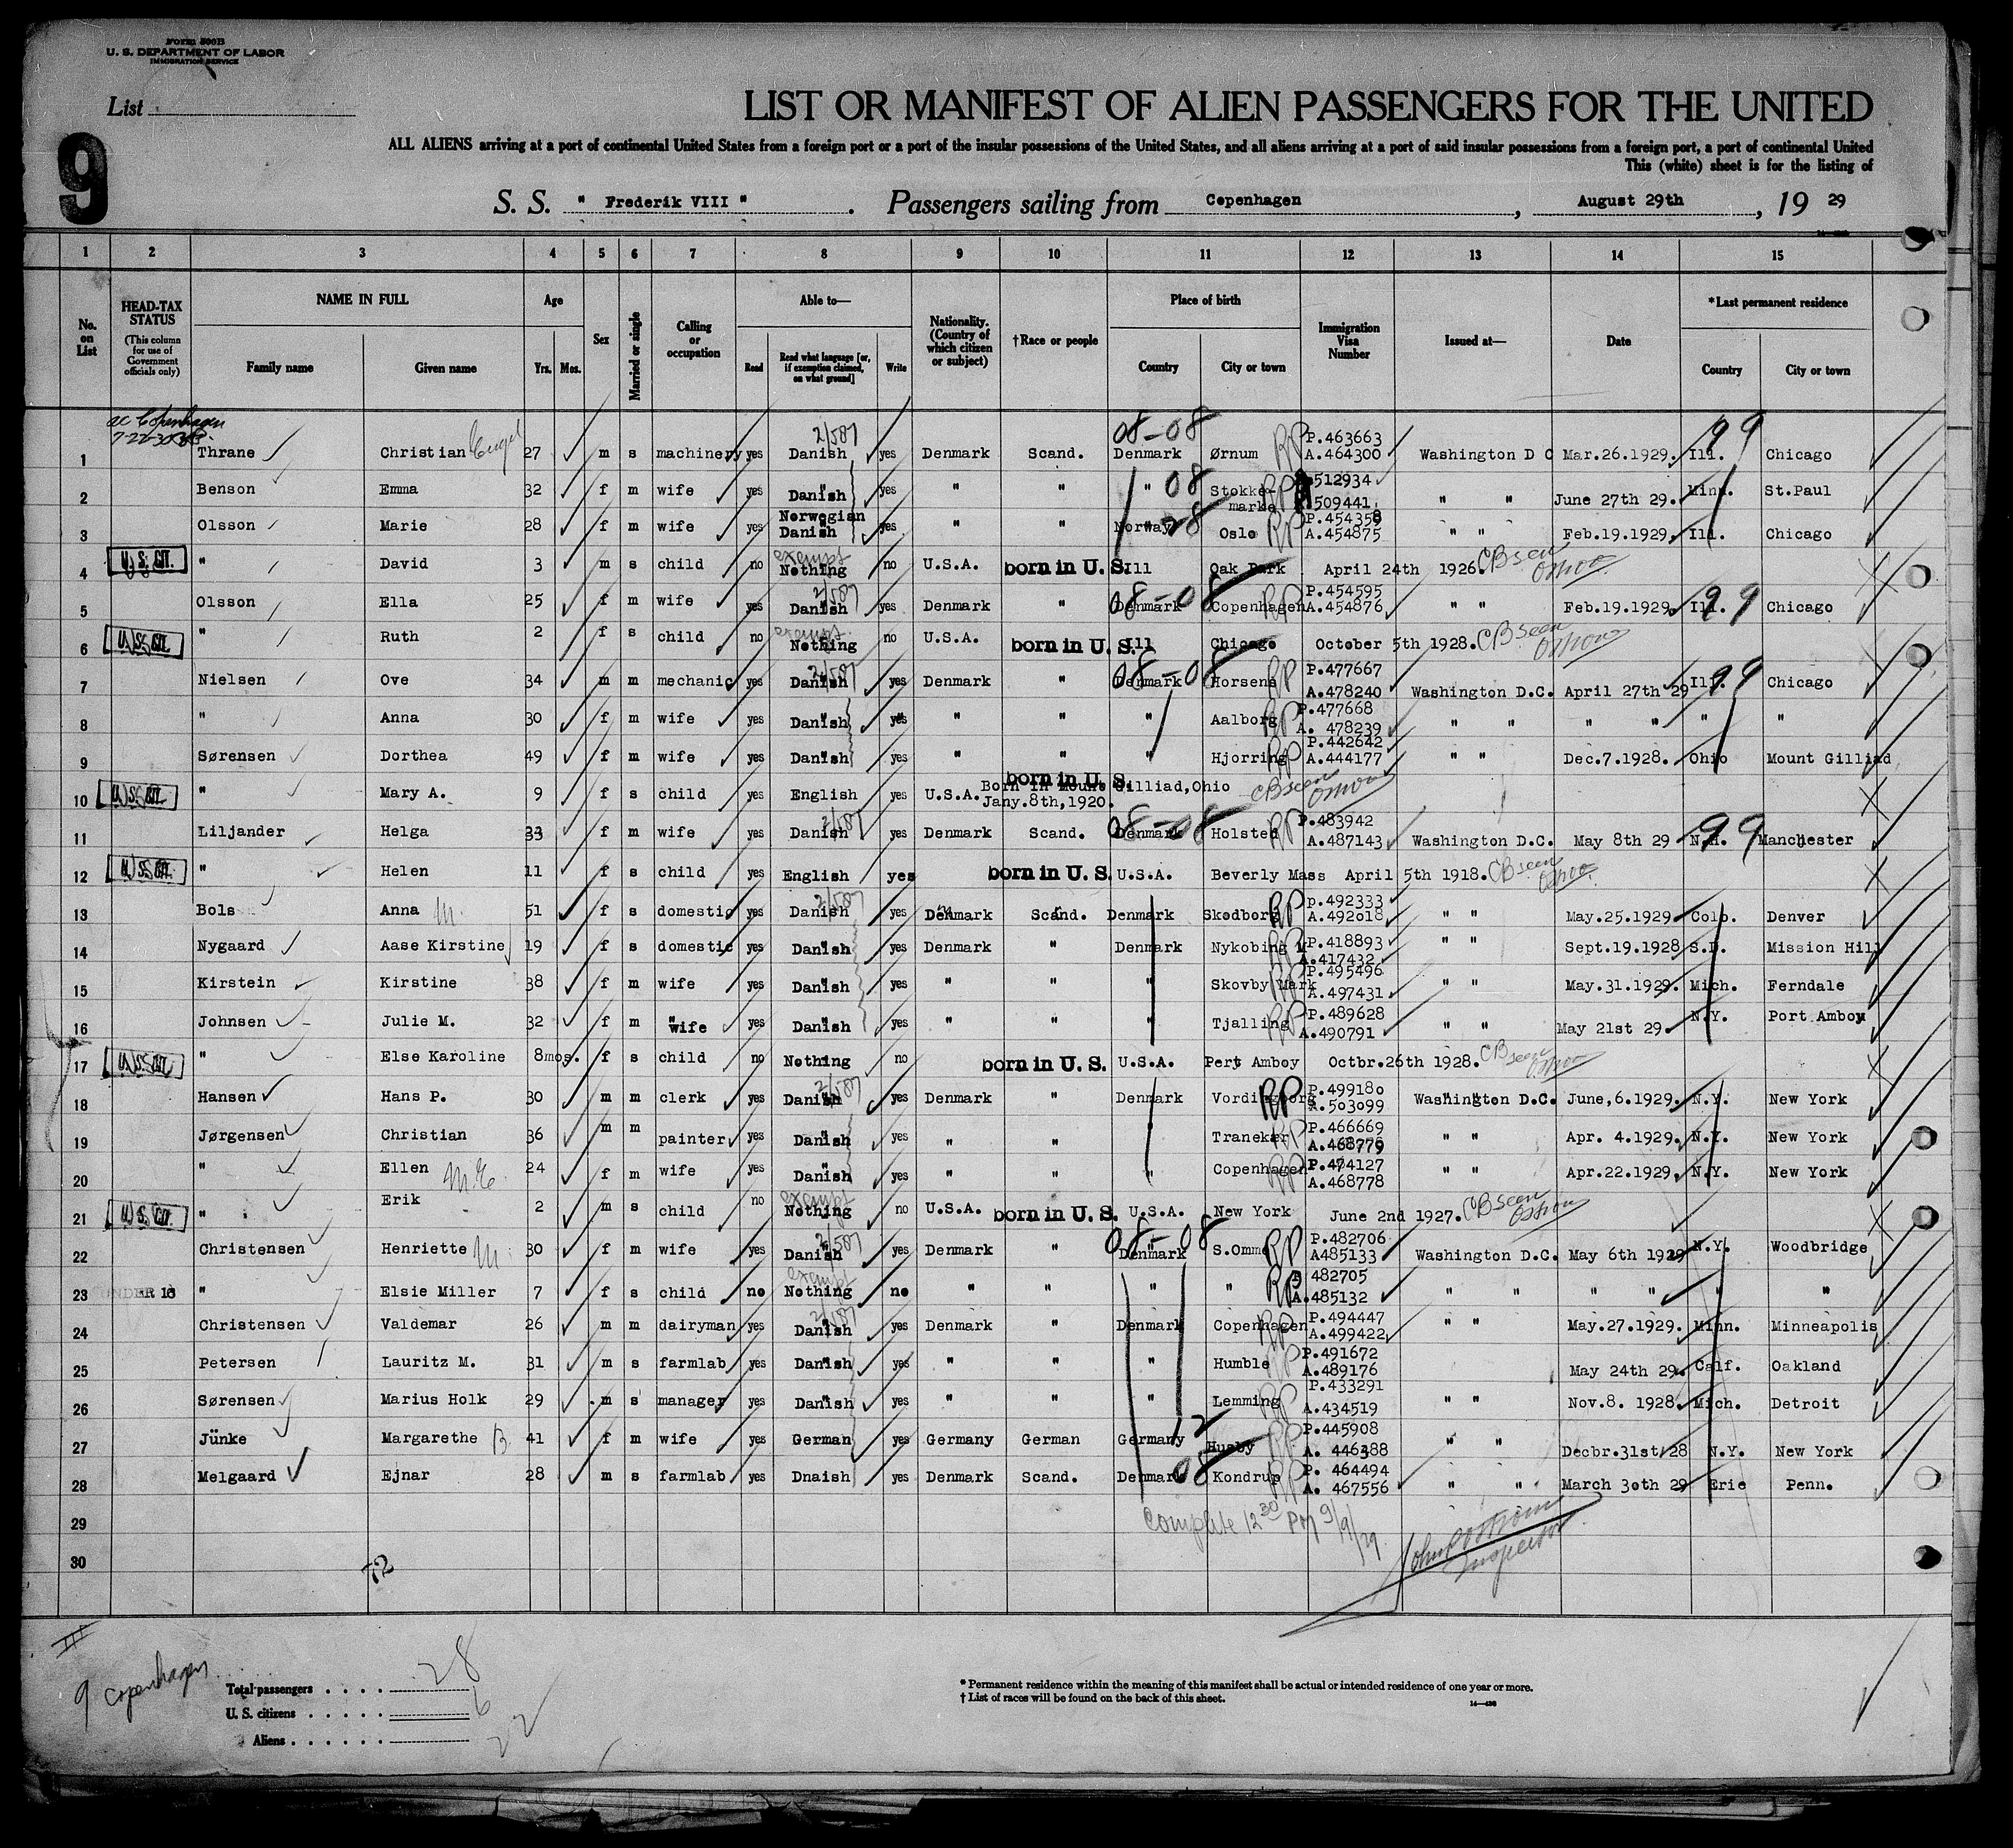 Form 500B
U. S. DEPARTMENT OF LABOR
IMMIGRATION SERVICE
List
9
LIST OR MANIFEST OF ALIEN PASSENGERS FOR THE UNITED
ALL ALIENS arriving at a port of continental United States from a foreign port or a port of the insular possessions of the United States, and all aliens arriving at a port of said insular possessions from a foreign port, a port of continental United
This (white) sheet is for the listing of
S. S. " Frederik VIII " . Passengers sailing from Copenhagen , August 29th , 19 29
1 2 3 4 5 6 7 8 9 10 11 12 13 14 15
No. on List
HEAD-TAX STATUS
(This column for use of Government officials only)
NAME IN FULL
Family name Given name
Age
Yrs. Mos.
Sex
Married or single
Calling or occupation
Able to—
Read Read what language [or, if exemption claimed, on what ground] Write
Nationality. (Country of which citizen or subject)
†Race or people
Place of birth
Country City or town
Immigration Visa Number
Issued at—
Date
*Last permanent residence
Country City or town
Copenhagen
7-22-30
1 Thrane Christian Engel 27 m s machinery yes Danish 2/587 yes Denmark Scand. Denmark 08-08 Ørnum RP P.463663 A.464300 Washington D C Mar.26.1929. Ill. 99 Chicago
2 Benson Emma 32 f m wife yes " Danish yes " " " 08 Stokkemarke RP 512934 509441 " " June 27th 29. Minn. St.Paul
3 Olsson Marie 28 f m wife yes Norwegian Danish yes " " Norway 28 Oslo RP P.454358 A.454875 " " Feb.19.1929. Ill. Chicago
4 U. S. CIT. " David 3 m s child no exempt Nothing no U.S.A. born in U. S. Ill Oak Park April 24th 1926. CB seen
5 Olsson Ella 25 f m wife yes 2/587 Danish yes Denmark " Denmark 08-08 Copenhagen RP P.454595 A.454876 " " Feb.19.1929. Ill. 99 Chicago
6 U. S. CIT. " Ruth 2 f s child no exempt Nothing no U.S.A. born in U. S. Ill Chicago October 5th 1928. CB seen
7 Nielsen Ove 34 m m mechanic yes 2/587 Danish yes Denmark " Denmark 08-08 Horsens RP P.477667 A.478240 Washington D.C. April 27th 29 Ill. 99 Chicago
8 " Anna 30 f m wife yes Danish yes " " " Aalborg RP P.477668 A. 478239 " " " " " "
9 Sørensen Dorthea 49 f m wife yes Danish yes " " " Hjorring RP P.442642 A.444177 " " Dec.7.1928. Ohio Mount Gilliad
10 U. S. CIT. " Mary A. 9 f s child yes English yes U.S.A. born in U. S. Born in Mount Gilliad,Ohio Jany.8th,1920. CB seen
11 Liljander Helga 33 f m wife yes 2/587 Danish yes Denmark Scand. Denmark 08-08 Holsted RP P.483942 A.487143 Washington D.C. May 8th 29 N.H. 99 Manchester
12 U. S. CIT. " Helen 11 f s child yes English yes born in U. S. U.S.A. Beverly Mass April 5th 1918. CB seen
13 Bols Anna M. 51 f s domestic yes 2/587 Danish yes Denmark Scand. Denmark Skodborg RP p.492333 A.492018 " " May.25.1929. Colo. Denver
14 Nygaard Aase Kirstine 19 f s domestic yes Danish yes Denmark " Denmark Nykobing M RP P.418893 A.417432 " " Sept.19.1928 S.D. Mission Hill
15 Kirstein Kirstine 38 f m wife yes Danish yes " " " Skovby Mark RP P.495496 A.497431 " " May.31.1929. Mich. Ferndale
16 Johnsen Julie M. 32 f m wife yes Danish yes " " " Tjalling RP P.489628 A.490791 " " May 21st 29. N.Y. Port Amboy
17 U. S. CIT. " Else Karoline 8mos. f s child no Nothing no born in U. S. U.S.A. Pert Amboy Octbr.26th 1928. CB seen
18 Hansen Hans P. 30 m m clerk yes 2/587 Danish yes Denmark " Denmark Vordingborg RP P.499180 A.503099 Washington D.C. June,6.1929. N.Y. New York
19 Jørgensen Christian 36 m m painter yes Danish yes " " " Tranekær RP P.466669 A.468779 " " Apr. 4.1929. N.Y. New York
20 " Ellen M.E. 24 f m wife yes Danish yes " " " Copenhagen RP P.474127 A.468778 " " Apr.22.1929. N.Y. New York
21 U. S. CIT. " Erik 2 m s child no exempt Nothing no U.S.A. born in U. S. U.S.A. New York June 2nd 1927. CB seen
22 Christensen Henriette M. 30 f m wife yes 2/587 Danish yes Denmark " Denmark 08-08 S.Omme RP P.482706 A485133 Washington D.C. May 6th 1929 N.Y. Woodbridge
23 UNDER 16 " Elsie Miller 7 f s child no exempt Nothing no " " " " RP P 482705 A.485132 " " " " " "
24 Christensen Valdemar 26 m m dairyman yes 2/587 Danish yes Denmark " Denmark Copenhagen RP P.494447 A.499422 " " May.27.1929. Minn. Minneapolis
25 Petersen Lauritz M. 31 m s farmlab yes Danish yes " " " Humble RP P.491672 A.489176 May 24th 29. Calf. Oakland
26 Sørensen Marius Holk 29 m s manager yes Danish yes " " " Lemming RP P.433291 A.434519 " " Nov.8. 1928. Mich. Detroit
27 Jünke Margarethe B. 41 f m wife yes German yes Germany German Germany 12 Husby RP P.445908 A. 446388 " " Decbr.31st/28 N.Y. New York
28 Melgaard Ejnar 28 m s farmlab yes Dnaish yes Denmark Scand. Denmark 08 Kondrup RP P. 464494 A. 467556 " " March 30th 29 Erie Penn.
29
30
Complete 12 30 PM 9/9/29
Inspector
9 Copenhagen
Total passengers . . . . 28
U. S. citizens . . . . . 6
Aliens . . . . . . 22
* Permanent residence within the meaning of this manifest shall be actual or intended residence of one year or more.
† List of races will be found on the back of this sheet.